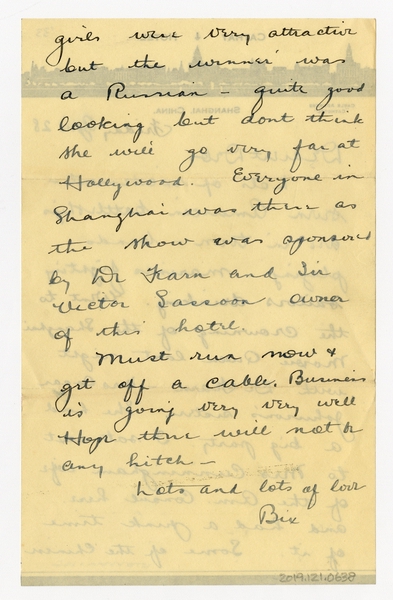 girls were very attractive
but the winner was
a Russian – quite good
looking but dont think
she will go very far at
Hollywood. Everyone in
Shanghai was there as
the show was sponsored
by Dr Fearn and Sir
Victor Sassoon owner
of this hotel.
Must run now &
get off a cable. Business
is going very very well
Hope there will not be
any hitch –
Lots and lots of love
Bix
2019.121.0638